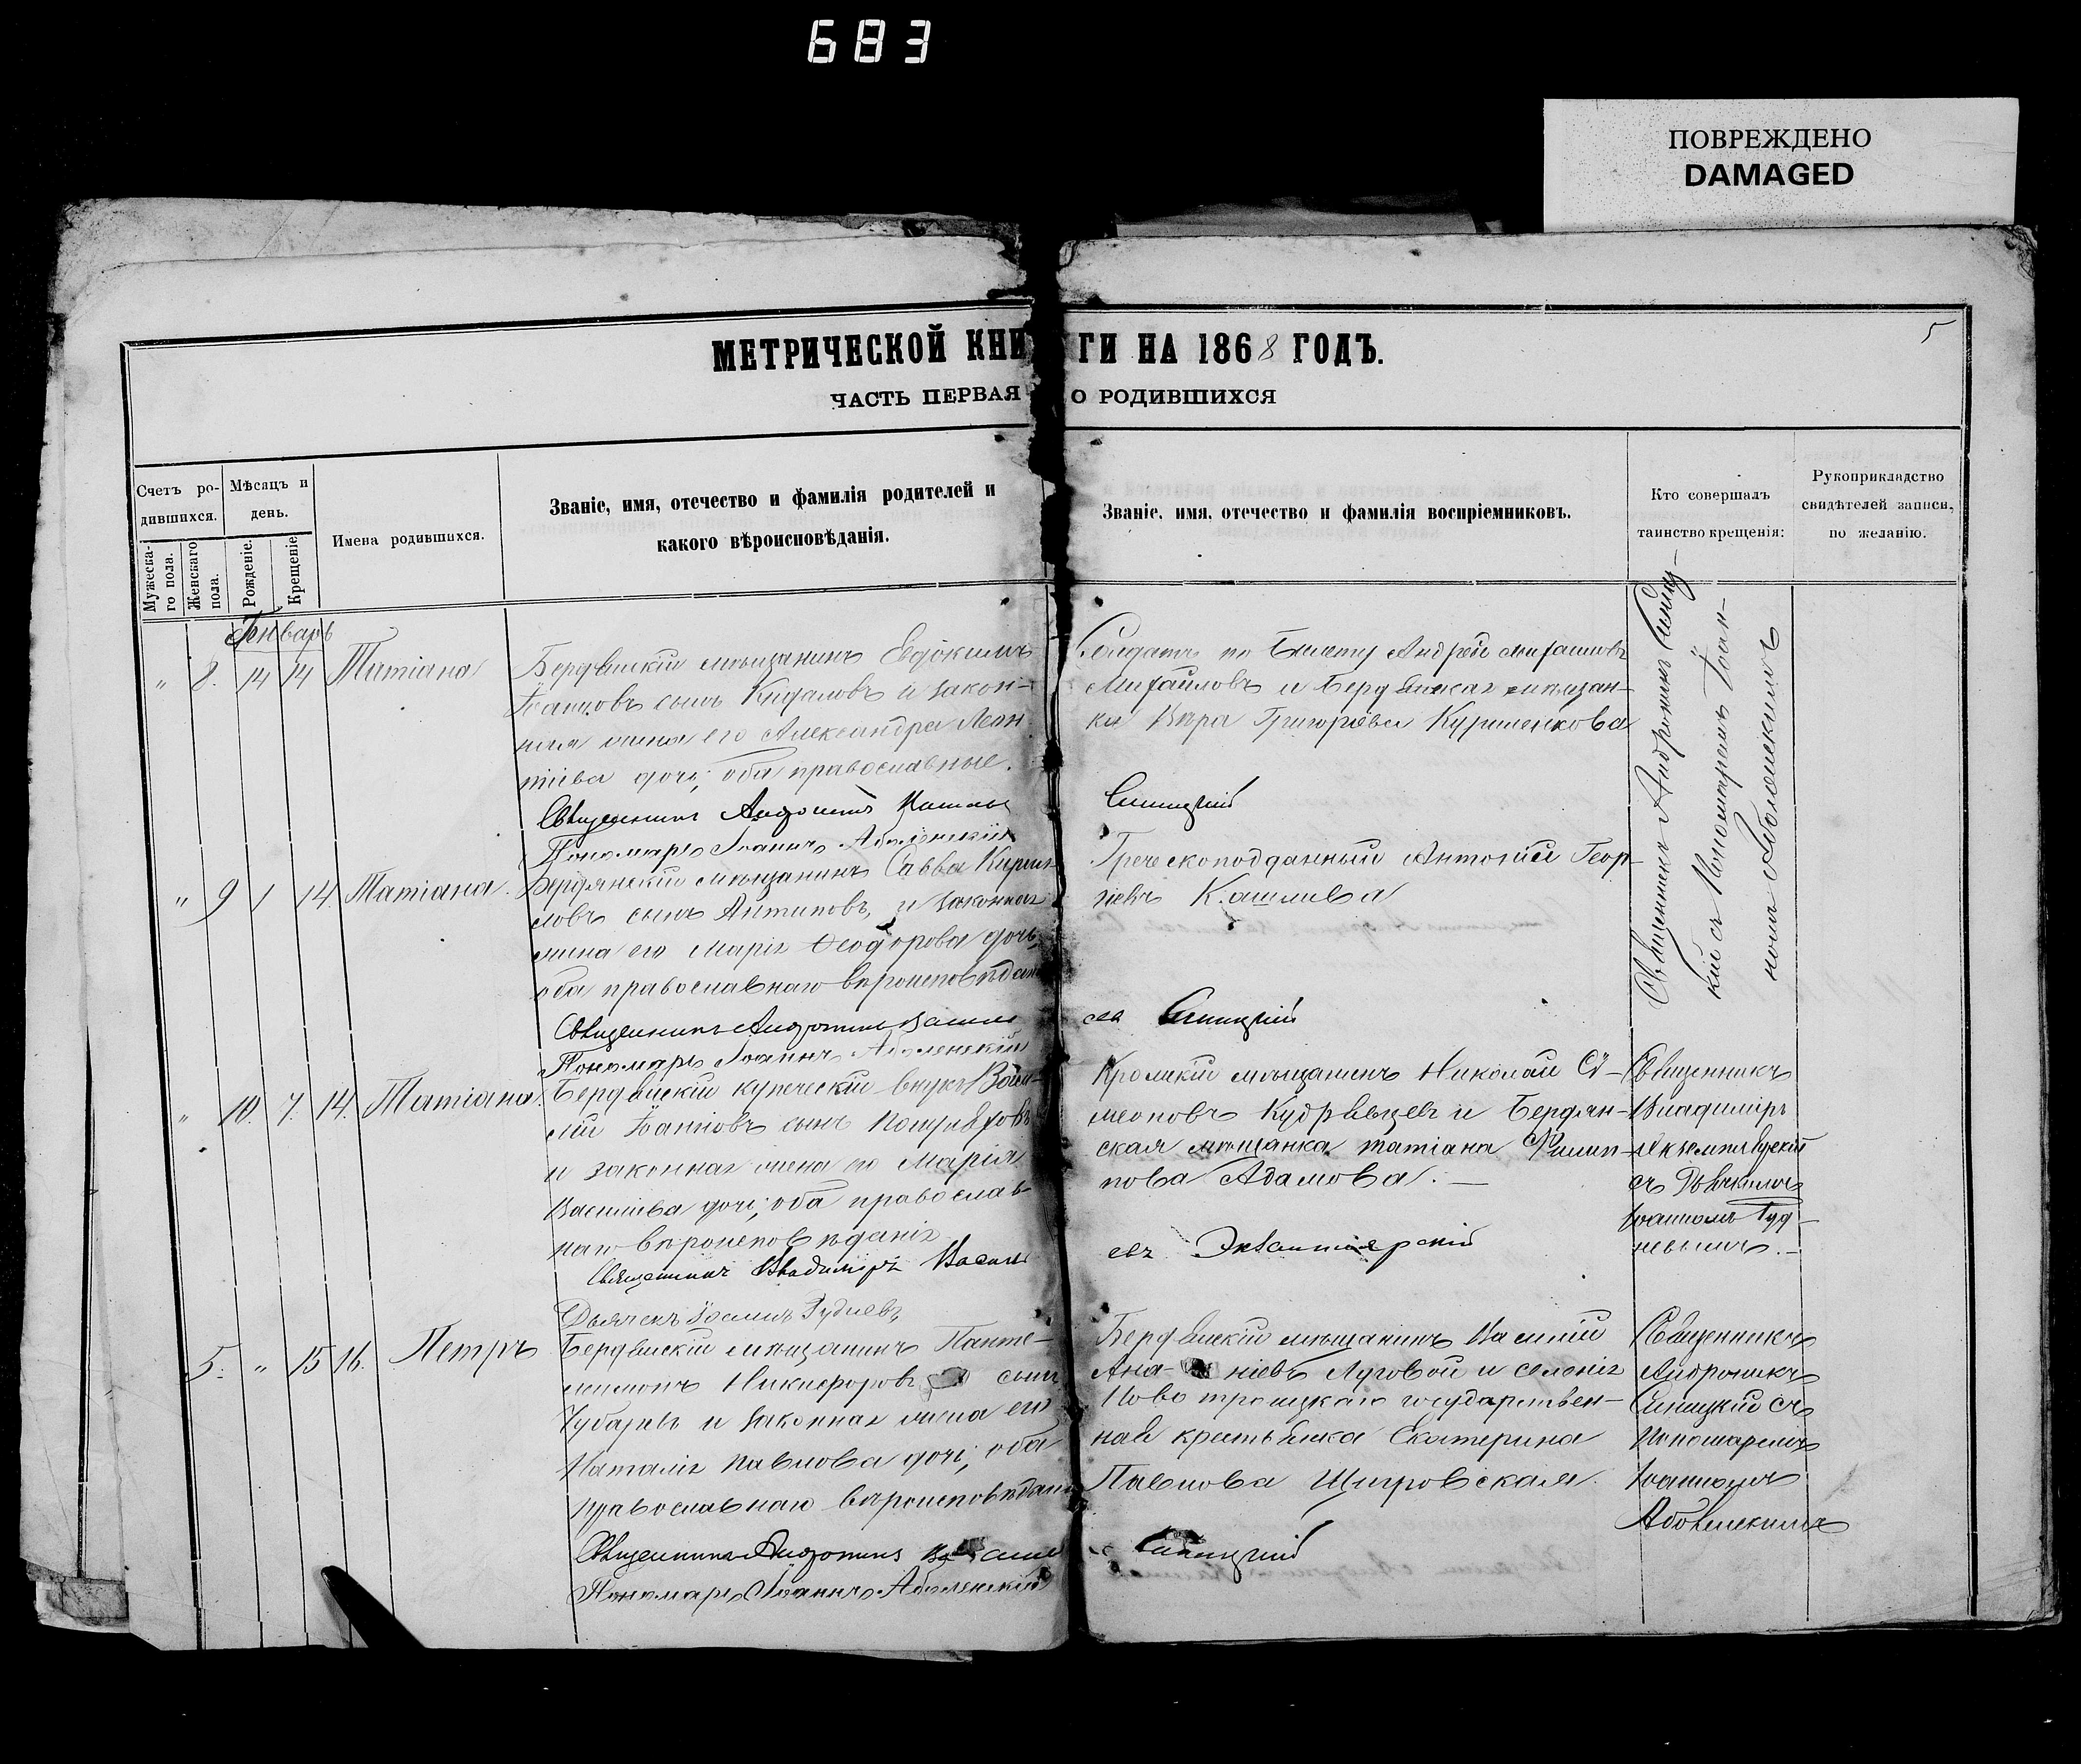 683
ПОВРЕЖДЕНО
DAMAGED
5
МЕТРИЧЕСКОЙ КНИГИ НА 1868 ГОДЪ.
ЧАСТЬ ПЕРВАЯ О РОДИВШИХСЯ
Счетъ ро-
дившихся.
Мѣсяцъ и
день.
Мужеска-
го пола.
Женскаго
пола.
Рожденіе.
Крещеніе.
Имена родившихся.
Званіе, имя, отечество и фамилія родителей и
какого вѣроисповѣданія.
Званіе, имя, отечество и фамилія воспріемниковъ.
Кто совершалъ
таинство крещенія:
Рукоприкладство
свидѣтелей записи,
по желанію.
Январь
" 8. 14 14 Татіана
Бердянскій мѣщанинъ Евдокимъ
сынъ и закон-
ная жена его Александра Леон
тіева дочь; оба православные.
Священникъ Андроникъ Василье
Пономарь Іоаннъ Аболенскій
Солдатъ по билету Андрей
Михайловъ и Бердянская мѣщан-
ка Вѣра Григорьева
Синицкій
Священникъ Андроникъ Синиц-
кій съ Пономаремъ Іоан-
номъ Аболенскимъ
" 9 1 14 Татіана.
Бердянскій мѣщанинъ Савва Кирил-
ловъ сынъ Антиповъ, и законная
жена его Марія Ѳеодорова дочь,
оба православнаго вѣроисповѣдан
Священникъ Андроникъ Василь
Пономарь Іоаннъ Аболенскій
Греческоподданный Антоній Геор-
гіевъ
евъ Синицкій
" 10. 7. 14. Татіана.
Бердянскій купеческій внукъ
сынъ
и законная жена его Марія
Васильева дочь; оба православ-
наго вѣроисповѣданія
Священникъ Владиміръ Василь
Дьячекъ Іоаннъ Рудневъ
Кромскій мѣщанинъ Николай Си-
меоновъ Кудрявцевъ и Бердян-
ская мѣщанка Татіана Филип-
пова Адамова. —
евъ
Священникъ
Владиміръ
съ Дьячкомъ
Іоанномъ Руд-
невымъ. —
5. " 15 16. Петръ
Бердянскій мѣщанинъ Панте-
леимонъ Никифоровъ сынъ
Чубаревъ и законная жена его
Наталія Павлова дочь; оба
православнаго вѣроисповѣдані
Священникъ Андроникъ Василье
Пономарь Іоаннъ Аболенскій
Бердянскій мѣщанинъ Василій
Ана- ніевъ Луговой и селенія
Ново троицкаго государствен-
ная крестьянка Екатерина
Павлова Щировская.
Синицкій
Священникъ
Андроникъ
Синицкій съ
Пономаремъ
Іоанномъ
Аболенскимъ